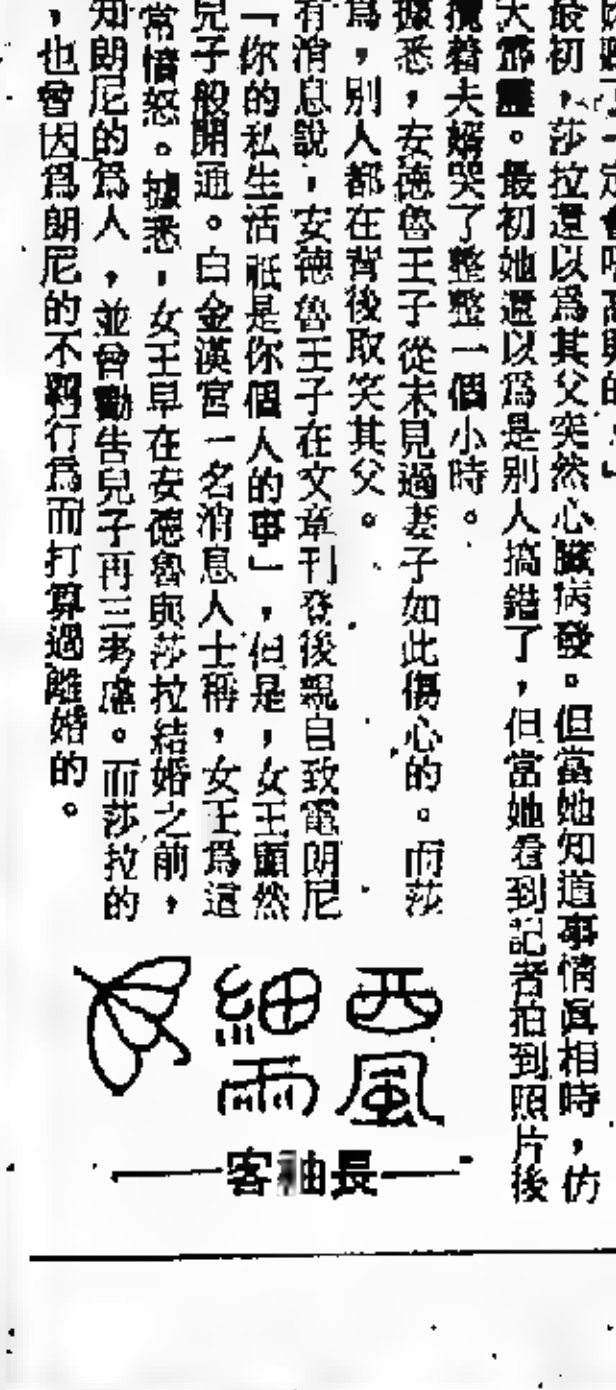 最初，莎拉還以爲其父突然心臟病發。但當她知道事情眞相時，仿
大爲震。最初她還以爲是別人搞錯了，但當她看到記者拍到照片後
攬着夫婿哭了整整一個小時。
據悉，安德魯王子從未見過妻子如此傷心的。而莎
爲，別人都在背後取笑其父。
有消息說，安德魯王子在文章刊登後親自致電朗尼
「你的私生活祗是你個人的事」，但是，女王顯然
兒子般開通。白金漢宮一名消息人士稱，女王爲這
常憤怒。據悉，女王早在安德魯與莎拉結婚之前，
知朗尼的爲人，並曾勸告兒子再三考慮。而莎拉的
，也會因爲朗尼的不羈行爲而打算過離婚的。
西風
細雨
長袖客